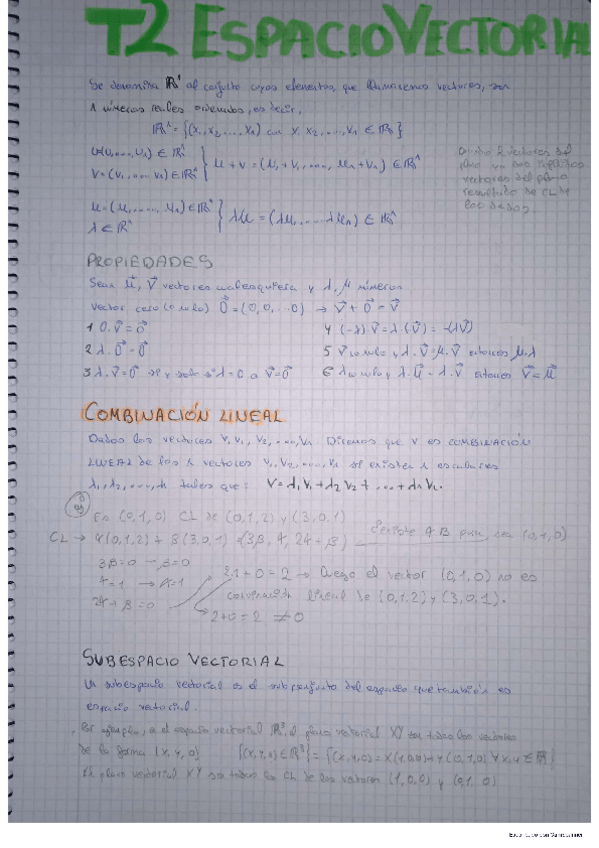 T2 ESPACIO VECTORIAL
Se denomina ℝⁿ al conjunto cuyos elementos, que llamaremos vectores, son
n números reales ordenados, es decir,
ℝⁿ = {(x₁, x₂, ..., xₙ) con x₁, x₂, ..., xₙ ∈ ℝ}
u=(u₁, ..., uₙ) ∈ ℝⁿ
v=(v₁, ... vₙ) ∈ ℝⁿ } u + v = (u₁ + v₁, ...., uₙ + vₙ) ∈ ℝⁿ
2 vectores del
plano
vectores del plano
resultado de CL de
los dados.
u=(u₁, ..., uₙ) ∈ ℝⁿ
λ ∈ ℝⁿ } λu = (λu₁, ..... λuₙ) ∈ ℝⁿ
PROPIEDADES
Sean u⃗, v⃗ vectores cualesquiera y λ, μ números
vector cero (o nulo) 0⃗ = (0, 0, ... 0) → v⃗ + 0⃗ = v⃗
1 0. v⃗ = 0⃗
4 (-λ). v⃗ = λ. (v⃗) = -(λv⃗)
2 λ. 0⃗ = 0⃗
5 v⃗ no nulo y λ. v⃗ = μ. v⃗ entonces μ=λ
3 λ. v⃗ = 0⃗ si y solo si λ = 0 o v⃗ = 0⃗
6 λ no nulo y λ. u⃗ = λ. v⃗ entonces v⃗ = u⃗
COMBINACIÓN LINEAL
Dados los vectores v, v₁, v₂, ..., vₙ Diremos que v es COMBINACIÓN
LINEAL de los n vectores v₁, v₂, ...., vₙ si existen n escalares
λ₁, λ₂, ...., λₙ tales que: v = λ₁ v₁ + λ₂ v₂ + ... + λₙ vₙ.
Es (0,1,0) CL de (0,1,2) y (3,0,1)
CL → A(0,1,2) + B(3,0,1) = (3B, A, 2A + B) existe A B para ser (0,1,0)
3B = 0 → B = 0
A = 1 → A = 1
2A + B = 0
2·1 + 0 = 2 → luego el vector (0,1,0) no es
combinación lineal de (0,1,2) y (3,0,1).
2+0 = 2 ≠ 0
SUBESPACIO VECTORIAL
Un subespacio vectorial es el subconjunto del espacio que también es
espacio vectorial.
Por ejemplo, en el espacio vectorial ℝ³ el plano vectorial XY son todos los vectores
de la forma (x, y, 0) {(x,y,0) ∈ ℝ³} = {(x,y,0) = x(1,0,0) + y(0,1,0) ∀ x,y ∈ ℝ}
El plano vectorial XY son todas las CL de los vectores (1,0,0) y (0,1,0)